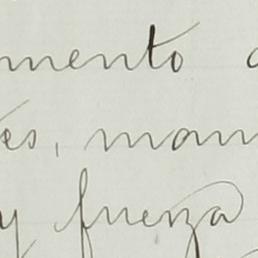 mento
es, man
y fuerza